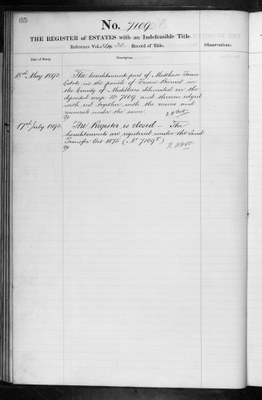 65
No. 7109
THE REGISTER of ESTATES with an Indefeasible Title.
Reference Vol. Record of Title.
Observations.
Date of Entry.
Description.
18th May 1892
The hereditament part of Matthew
Estate in the parish of in
the County of Middlesex delineated on the
deposited map No 7109 and thereon edged
with red together with the mines and
minerals under the same
17th July 1894
The Register is closed — The
hereditaments are registered under the Land
Transfer Act 1875 (No 7109)